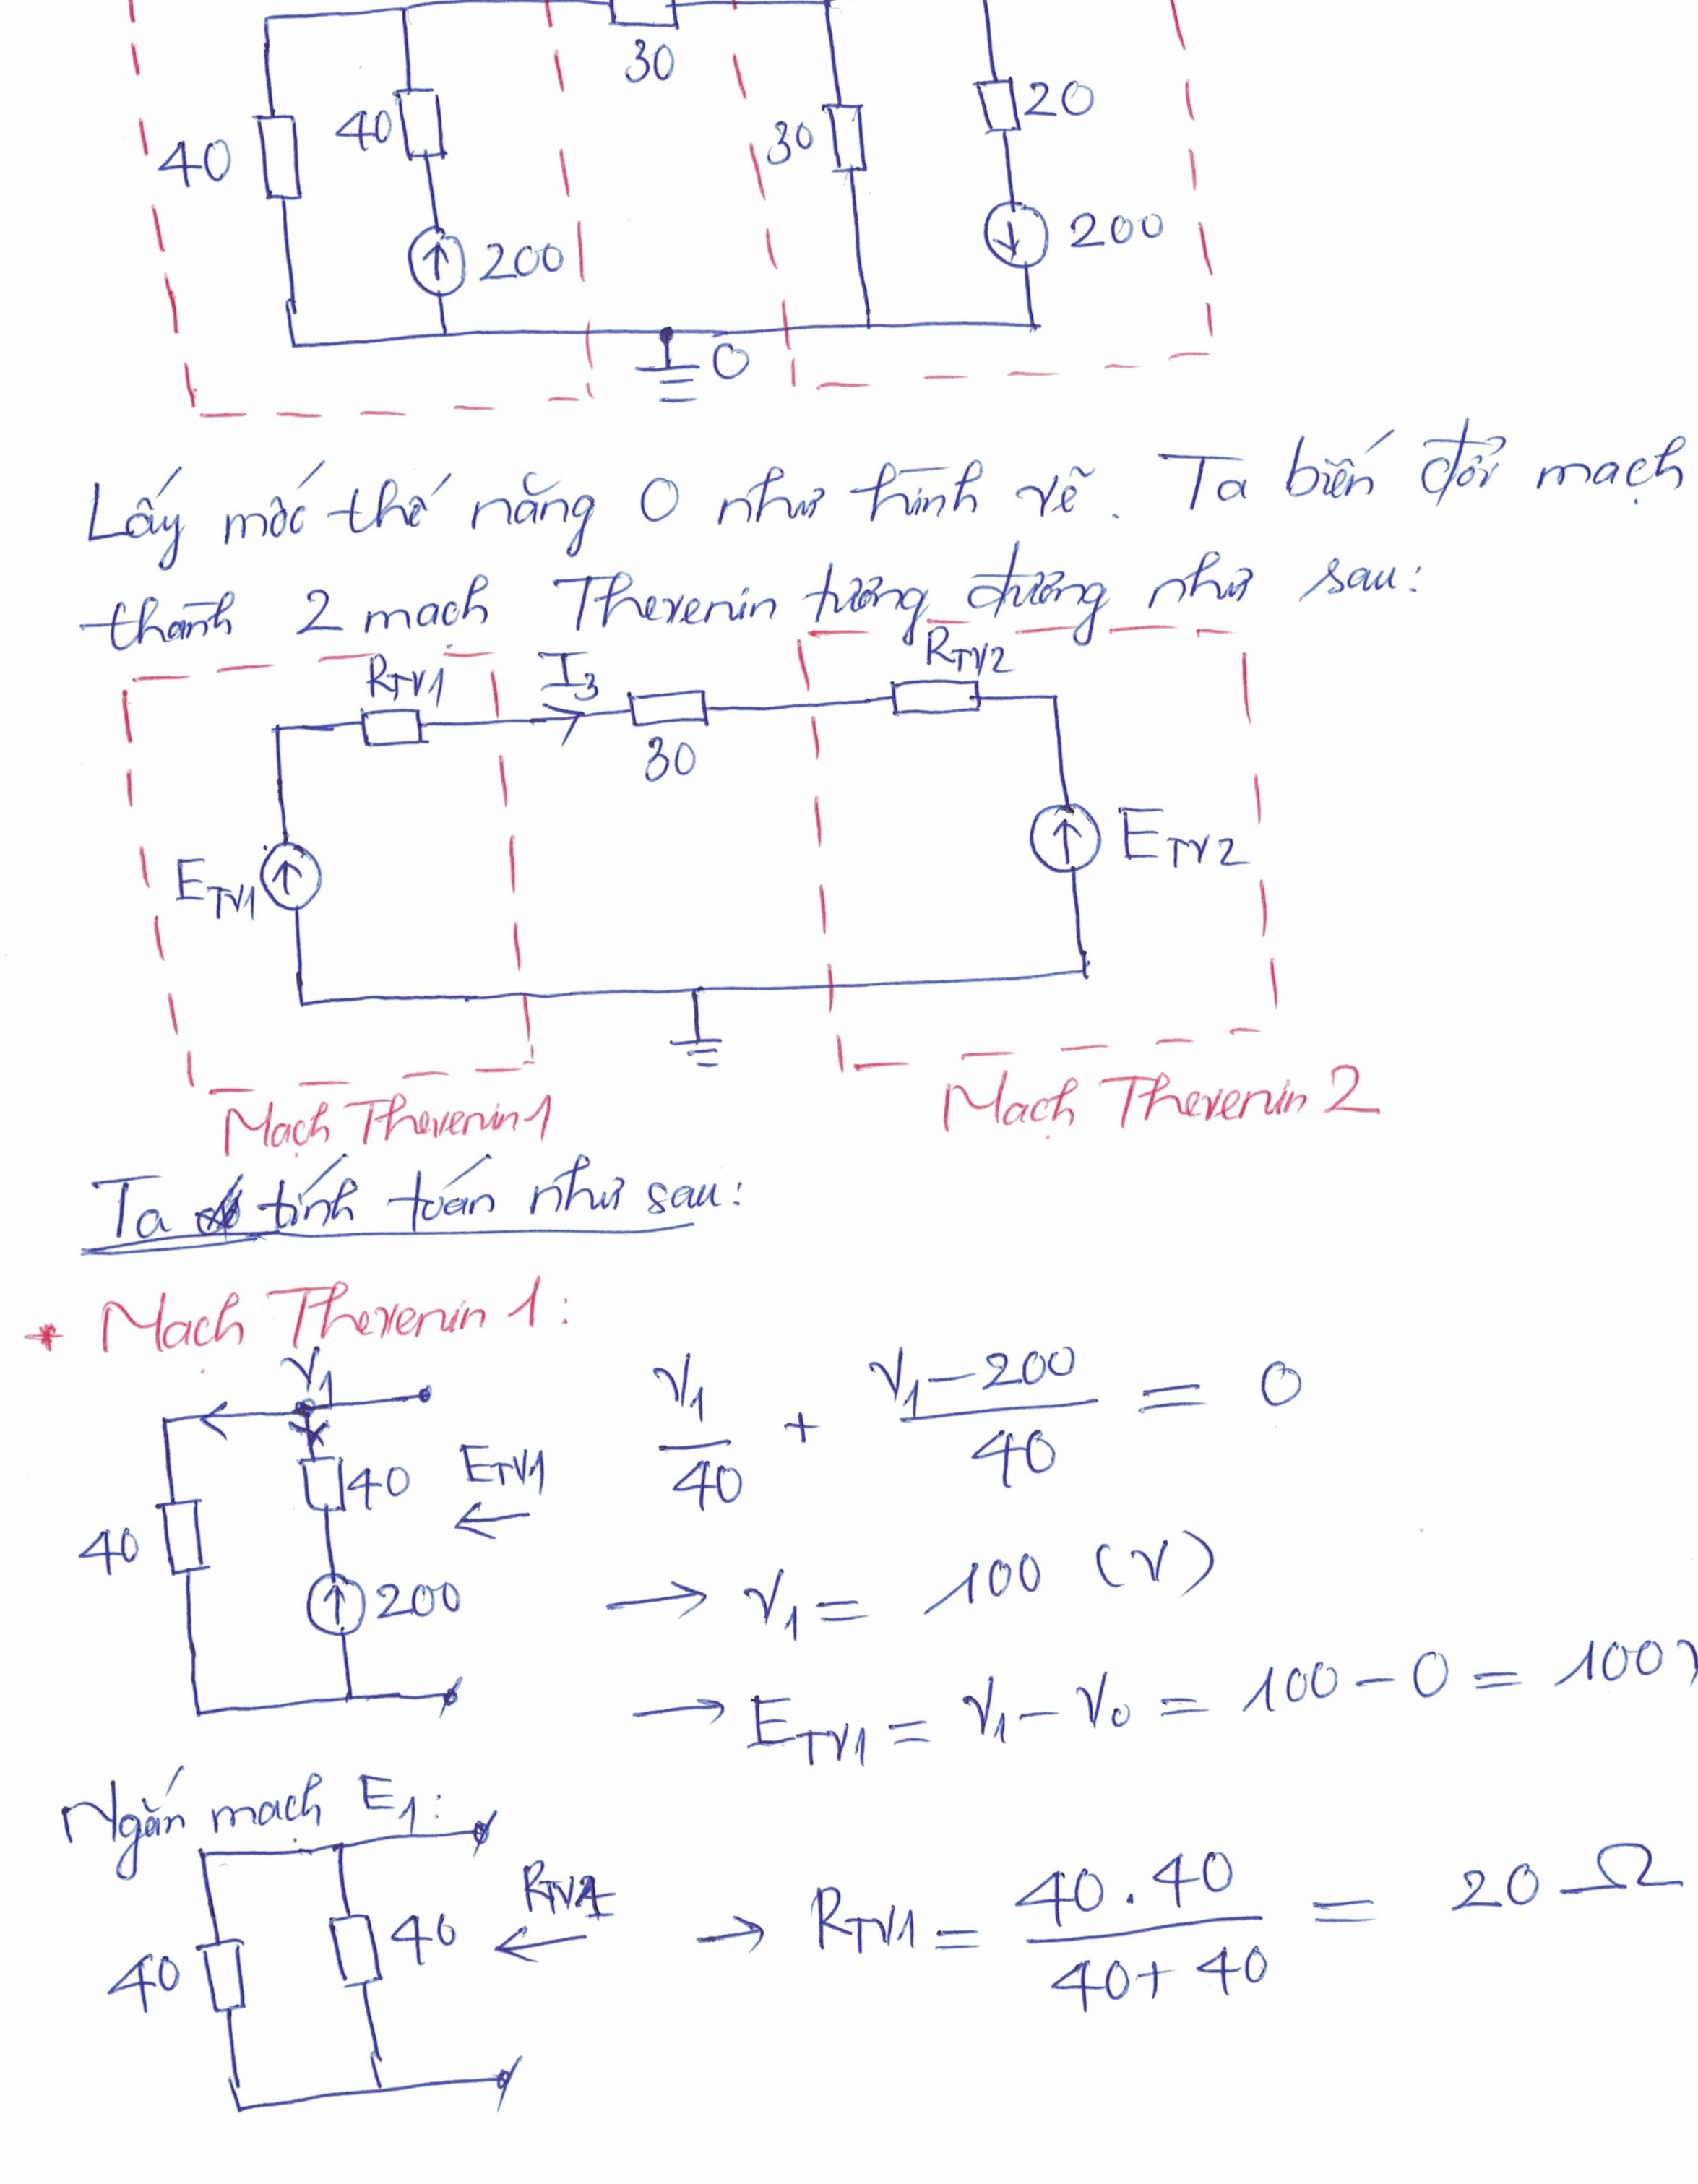 30
40
40
30
20
200
200
0
Lấy mốc thế năng 0 như hình vẽ. Ta biến đổi mạch
thành 2 mạch Thevenin tương đương như sau:
RTV1
I3
RTV2
30
ETV1
ETV2
Mạch Thevenin 1
Mạch Thevenin 2
Ta tính toán như sau:
* Mạch Thevenin 1:
V1
V1/40 + (V1-200)/40 = 0
40
ETV1
40
200
→ V1 = 100 (V)
→ ETV1 = V1 - V0 = 100 - 0 = 100V
Ngắn mạch E1:
RTV1
40
40
→ RTV1 = (40.40)/(40+40) = 20 Ω